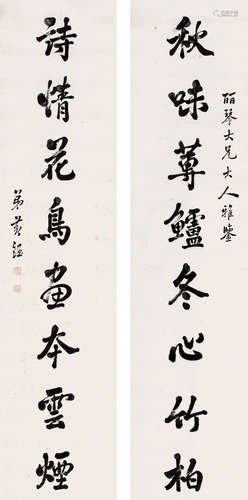 丽琴大兄大人雅鉴
秋味蓴鱸冬心竹柏
詩情花鳥画本雲煙
弟黄鉽